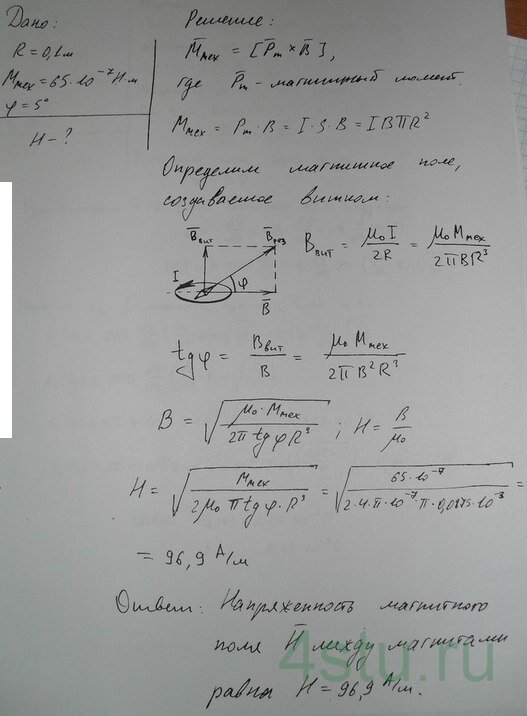 Дано:
R = 0,1 м
Mмех = 65·10⁻⁷ Н·м
φ = 5°
H - ?
Решение:
M̄мех = [P̄m × B̄],
где P̄m - магнитный момент.
Mмех = Pm · B = I·S·B = IBπR²
Определим магнитное поле,
создаваемое витком:
B̄вит
B̄рез
I
φ
B̄
Bвит = μ₀I / 2R = μ₀Mмех / 2πBR³
tgφ = Bвит / B = μ₀Mмех / 2πB²R³
B = √(μ₀·Mмех / 2π tgφ R³) ; H = B / μ₀
H = √(Mмех / 2μ₀π tgφ·R³) = √(65·10⁻⁷ / 2·4·π·10⁻⁷·π·0,0875·10⁻³) =
= 96,9 А/м
Ответ: Напряженность магнитного
поля H̄ между магнитами
равна H = 96,9 А/м.
4stu.ru